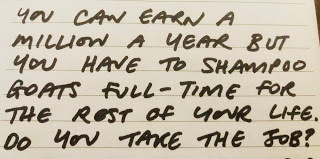 YOU CAN EARN A
MILLION A YEAR BUT
YOU HAVE TO SHAMPOO
GOATS FULL-TIME FOR
THE REST OF YOUR LIFE.
DO YOU TAKE THE JOB?